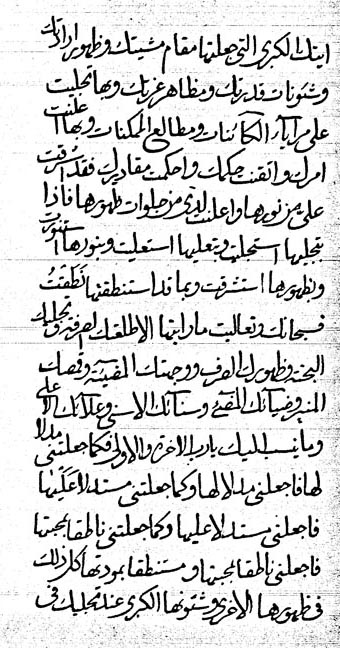 ايتك الكبرى التي جعلتها مقام مشيتك وظهور ارادتك
وشئونات قدرتك ومظاهر عزتك وبها تجليت
على مرايآء الكآئنات ومطالع الممكنات وبها اعلنت
امرك واتقنت حكمك واحكمت مقاديرك فقد اشرقت
على من نورها واعلنت لدى من جلوات ظهورها فاذا
بتجليها استجليت وبتعليها استعليت وبنورها استنورت
وبظهورها استشرقت وبما قد استنطقتها نطقت
فسبحانك وتعاليت ما رايتها الا طلعتك الصرفة وتجليك
البحتة وظهورك الصرف ووجهتك وقمصك
المنير وضيآئك وسنآئك الاسنى وعلآئك الاعلى
وما ينسب اليك يارب الاخرة والاولى فكما جعلتني مدلا
لها فاجعلني مدلا لها وكما جعلتني مستدلا عليها
فاجعلني مستدلا عليها وكما جعلتني ناطقا بمحبتها
فاجعلني ناطقا بمحبتها و مستنطقا بمودتها كل ذلك
في ظهورها الاخرى وشئونها الكبرى عند تجليك في